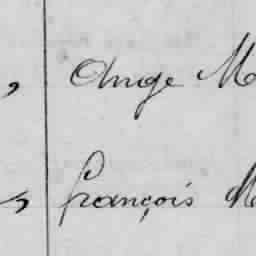 , Ange M
, françois M